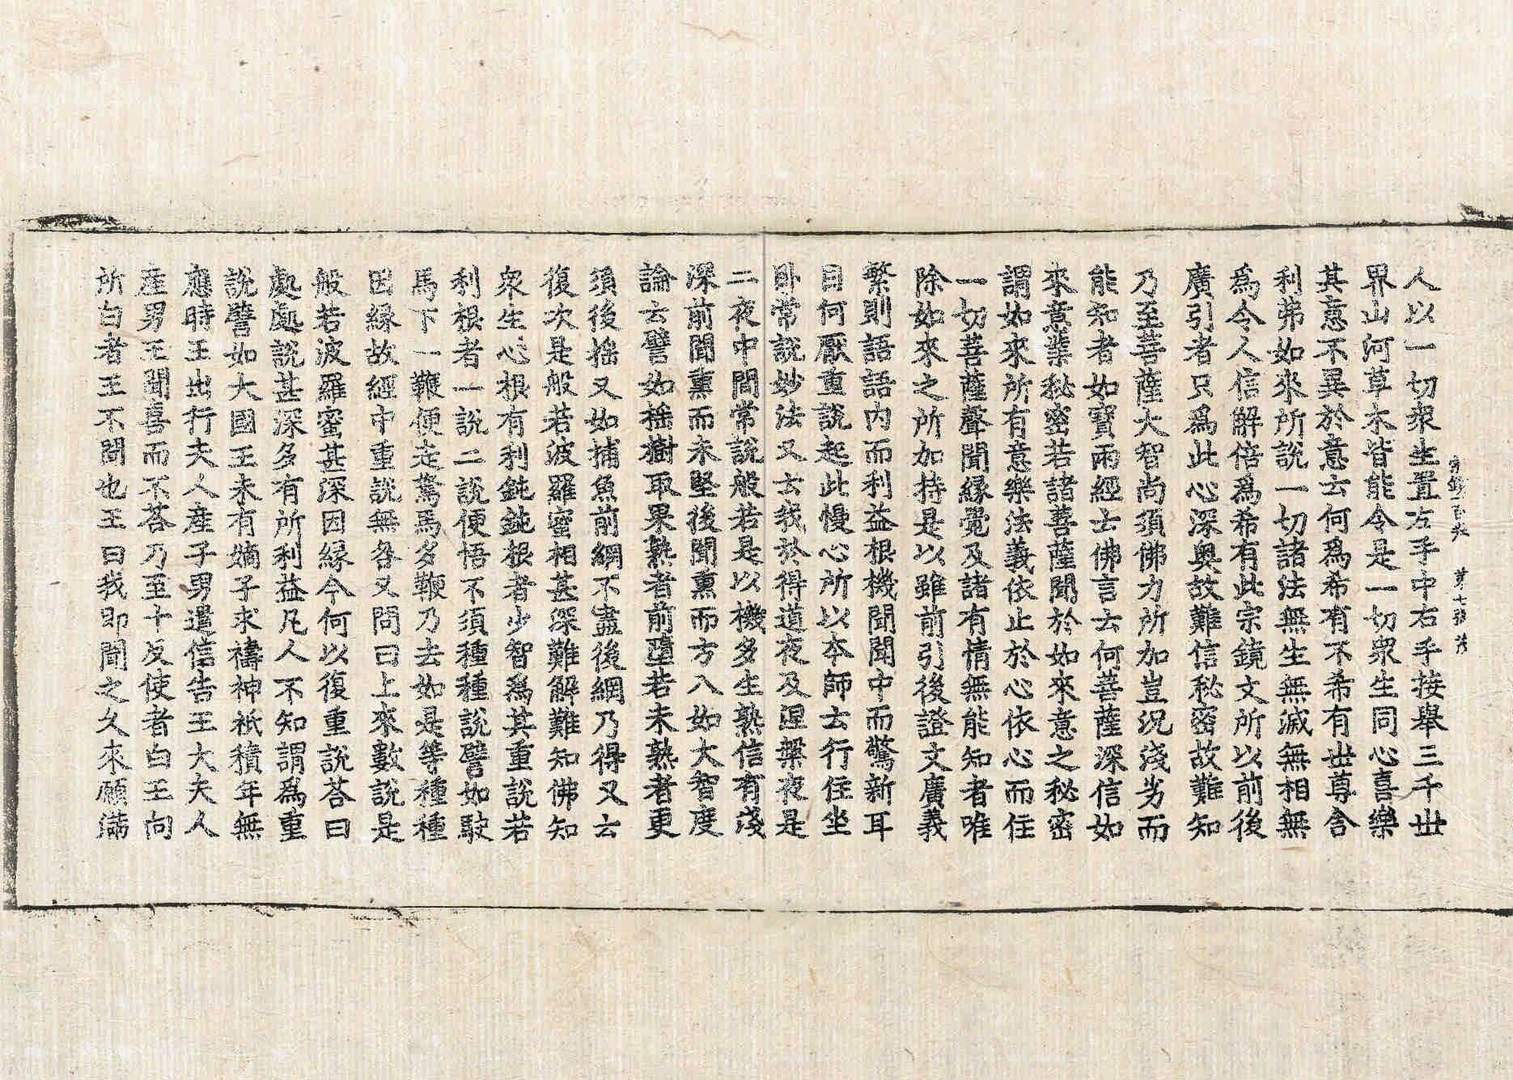 人以一切衆生置左手中右手接舉三千世
界山河草木皆能令是一切衆生同心喜樂
其意不異於意云何爲希有不希有世尊舍
利弗如來所說一切諸法無生無滅無相無
爲令人信解倍爲希有此宗鏡文所以前後
廣引者只爲此心深奧故難信秘密故難知
乃至菩薩大智尚須佛力所加豈況淺劣而
能知者如寶雨經云佛言云何菩薩深信如
來意業秘密若諸菩薩聞於如來意之秘密
謂如來所有意樂法義依止於心依心而住
一切菩薩聲聞緣覺及諸有情無能知者唯
除如來之所加持是以雖前引後證文廣義
繁則語語內而利益根機聞聞中而驚新耳
目何厭重說起此慢心所以本師云行住坐
卧常說妙法又云我於得道夜及涅槃夜是
二夜中閒常說般若是以機多生熟信有淺
深前聞熏而未堅後聞熏而方入如大智度
論云譬如搖樹取果熟者前墮若未熟者更
須後搖又如捕魚前網不盡後網乃得又云
復次是般若波羅蜜相甚深難解難知佛知
衆生心根有利鈍鈍根者少智爲其重說若
利根者一說二說便悟不須種種說譬如駛
馬下一鞭便走駑馬多鞭乃去如是等種種
因緣故經中重說無咎又問曰上來數說是
般若波羅蜜甚深因緣今何以復重說荅曰
處處說甚深多有所利益凡人不知謂爲重
說譬如大國王未有嫡子求禱神祇積年無
應時王出行夫人產子男遣信告王大夫人
產男王聞喜而不荅乃至十反使者白王向
所白者王不聞也王曰我即聞之久來願滿